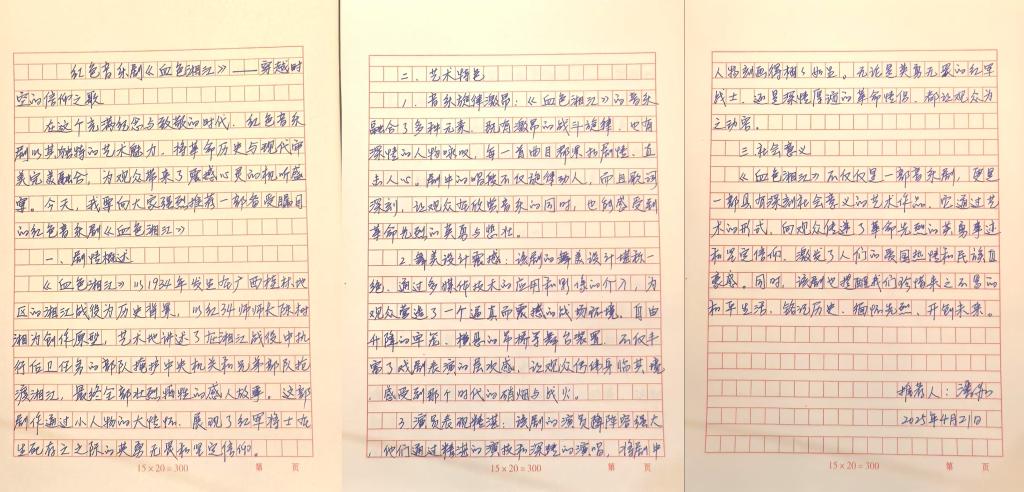 红色音乐剧《血色湘江》——穿越时
空的信仰之歌
在这个充满纪念与致敬的时代，红色音乐
剧以其独特的艺术魅力，将革命历史与现代审
美完美融合，为观众带来了震撼心灵的视听盛
宴。今天，我要向大家强烈推荐一部备受瞩目
的红色音乐剧《血色湘江》
一、剧情概述
《血色湘江》以1934年发生在广西桂林地
区的湘江战役为历史背景，以红34师师长陈树
湘为创作原型，艺术地讲述了在湘江战役中执
行后卫任务的部队掩护中央机关和兄弟部队抢
渡湘江，最终全部壮烈牺牲的感人故事。这部
剧作通过小人物的大情怀，展现了红军将士在
生死存亡之际的英勇无畏和坚定信仰。
15×20=300 第 页
二、艺术特色
1.音乐旋律激昂：《血色湘江》的音乐
融合了多种元素，既有激昂的战斗旋律，也有
深情的人物咏叹，每一首曲目都紧扣剧情，直
击人心。剧中的唱段不仅旋律动人，而且歌词
深刻，让观众在欣赏音乐的同时，也能感受到
革命先烈的英勇与悲壮。
2.舞美设计震撼：该剧的舞美设计堪称一
绝，通过多媒体技术的应用和影像的介入，为
观众营造了一个逼真而震撼的战场环境。自由
升降的牢笼、横悬的吊桥等舞台装置，不仅丰
富了戏剧表演的层次感，让观众仿佛身临其境
，感受到那个时代的硝烟与战火。
3.演员表现精湛：该剧的演员阵容强大
，他们通过精湛的演技和深情的演唱，将剧中
15×20=300 第 页
人物刻画得栩栩如生。无论是英勇无畏的红军
战士，还是深情厚谊的革命情侣，都让观众为
之动容。
三.社会意义
《血色湘江》不仅仅是一部音乐剧，更是
一部具有深刻社会意义的艺术作品。它通过艺
术的形式，向观众传递了革命先烈的英勇事迹
和坚定信仰，激发了人们的爱国热情和民族自
豪感。同时，该剧也提醒我们珍惜来之不易的
和平生活，铭记历史，缅怀先烈，开创未来。
推荐人：
2025年4月21日
15×20=300 第 页